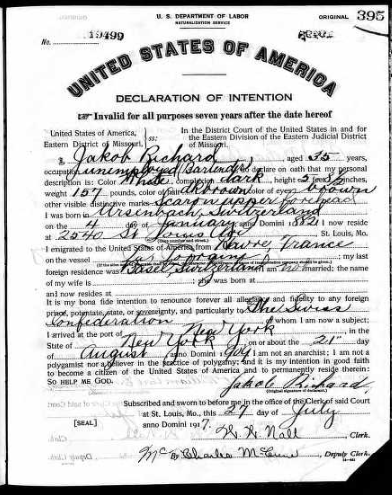 U. S. DEPARTMENT OF LABOR
NATURALIZATION SERVICE
ORIGINAL 395
No. 19499
UNITED STATES OF AMERICA
DECLARATION OF INTENTION
Invalid for all purposes seven years after the date hereof
United States of America, In the District Court of the United States in and for
Eastern District of Missouri, ss: the Eastern Division of the Eastern Judicial District
of Missouri.
I, Jakob Richard, aged 35 years,
occupation unemployed (Bartender), do declare on oath that my personal
description is: Color White, complexion dark, height feet inches,
weight 157 pounds, color of hair dk brown, color of eyes brown
other visible distinctive marks Scar on upper forehead
I was born in Ursenbach, Switzerland
on the 4 day of January, anno Domini 1882; I now reside
at 2540 St. Louis, Mo.
I emigrated to the United States of America from Havre, France
on the vessel La Lorraine; my last
foreign residence was Basel, Switzerland; I am not married; the name
of my wife is ; she was born at
and now resides at
It is my bona fide intention to renounce forever all allegiance and fidelity to any foreign
prince, potentate, state, or sovereignty, and particularly to The Swiss
Confederation, of whom I am now a subject;
I arrived at the port of New York, in the
State of New York, on or about the 21st day
of August, anno Domini ; I am not an anarchist; I am not a
polygamist nor a believer in the practice of polygamy; and it is my intention in good faith
to become a citizen of the United States of America and to permanently reside therein:
SO HELP ME GOD.
Jakob Richard
(Original signature of declarant.)
Subscribed and sworn to before me in the office of the Clerk of said Court
at St. Louis, Mo., this 27 day of July
[SEAL] anno Domini 1917.
W. W. Nall
Clerk.
Charles Deputy Clerk.